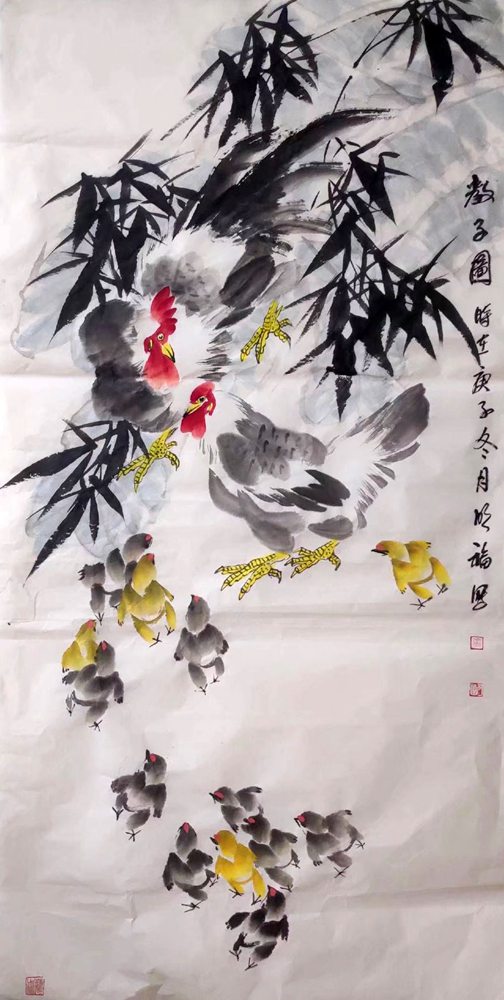 教子圖 時在庚子冬月明福畫